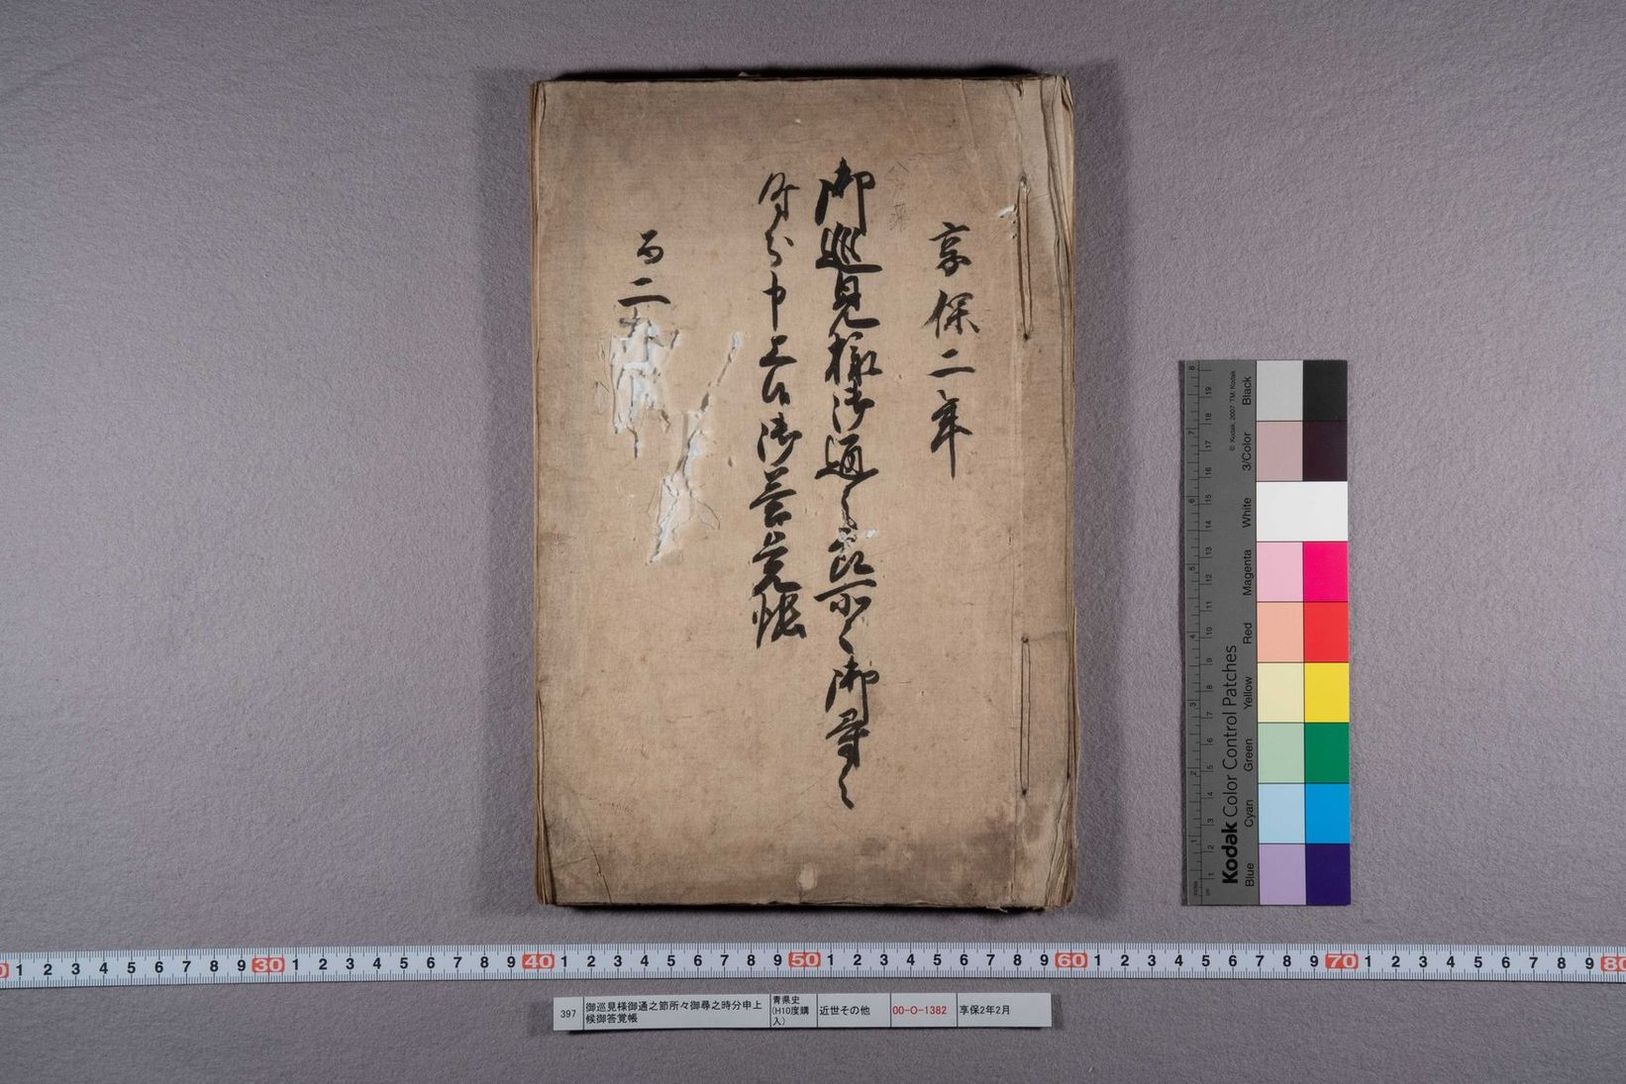 享保二年
御巡見様御通之節所々御尋之
時分申上候御答覚帳
二
397
御巡見様御通之節所々御尋之時分申上
候御答覚帳
青県史
(H10度購
入)
近世その他
00-O-1382
享保2年2月
Kodak Color Control Patches
© Kodak, 2007 TM: Kodak
Blue Cyan Green Yellow Red Magenta White 3/Color Black
1 2 3 4 5 6 7 8 9 30 1 2 3 4 5 6 7 8 9 40 1 2 3 4 5 6 7 8 9 50 1 2 3 4 5 6 7 8 9 60 1 2 3 4 5 6 7 8 9 70 1 2 3 4 5 6 7 8 9 80